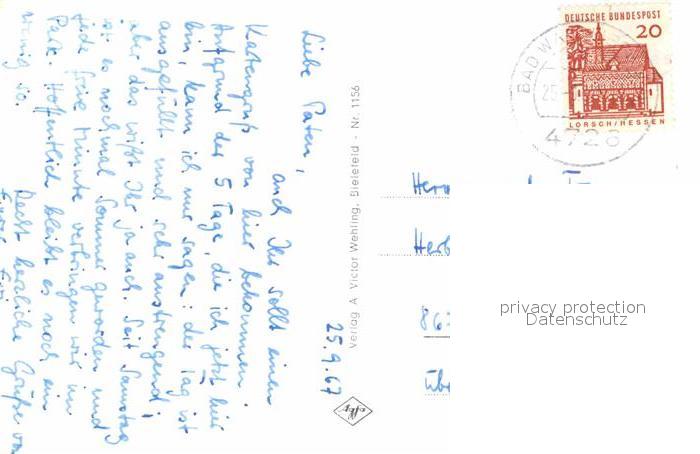 25.9.67
Liebe Paten,
auch Ihr sollt einen
Kartengruß von hier bekommen.
Aufgrund der 5 Tage, die ich jetzt hier
bin, kann ich nur sagen: der Tag ist
ausgefüllt und sehr anstrengend!
aber das wißt Ihr ja auch. Seit Samstag
ist es nochmal Sommer geworden und
jede freie Minute verbringen wir im
Park. Hoffentlich bleibt es noch ein
wenig so.
Recht herzliche Grüße von
Verlag A Victor Wehling, Bielefeld - Nr. 1156
agfa
DEUTSCHE BUNDESPOST
20
LORSCH/HESSEN
BAD W
25
Her
Herb
86
Übe
privacy protection
Datenschutz